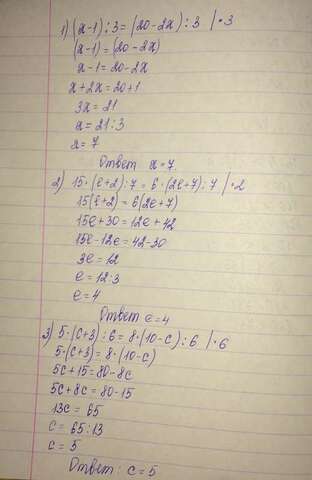 1) (x-1):3=(20-2x):3 |·3
(x-1)=(20-2x)
x-1=20-2x
x+2x=20+1
3x=21
x=21:3
x=7
Ответ x=7.
2) 15·(e+2):7=6·(2e+7):7 |·2
15(e+2)=6(2e+7)
15e+30=12e+42
15e-12e=42-30
3e=12
e=12:3
e=4
Ответ e=4
3) 5·(c+3):6=8·(10-c):6 |·6
5·(c+3)=8·(10-c)
5c+15=80-8c
5c+8c=80-15
13c=65
c=65:13
c=5
Ответ: c=5